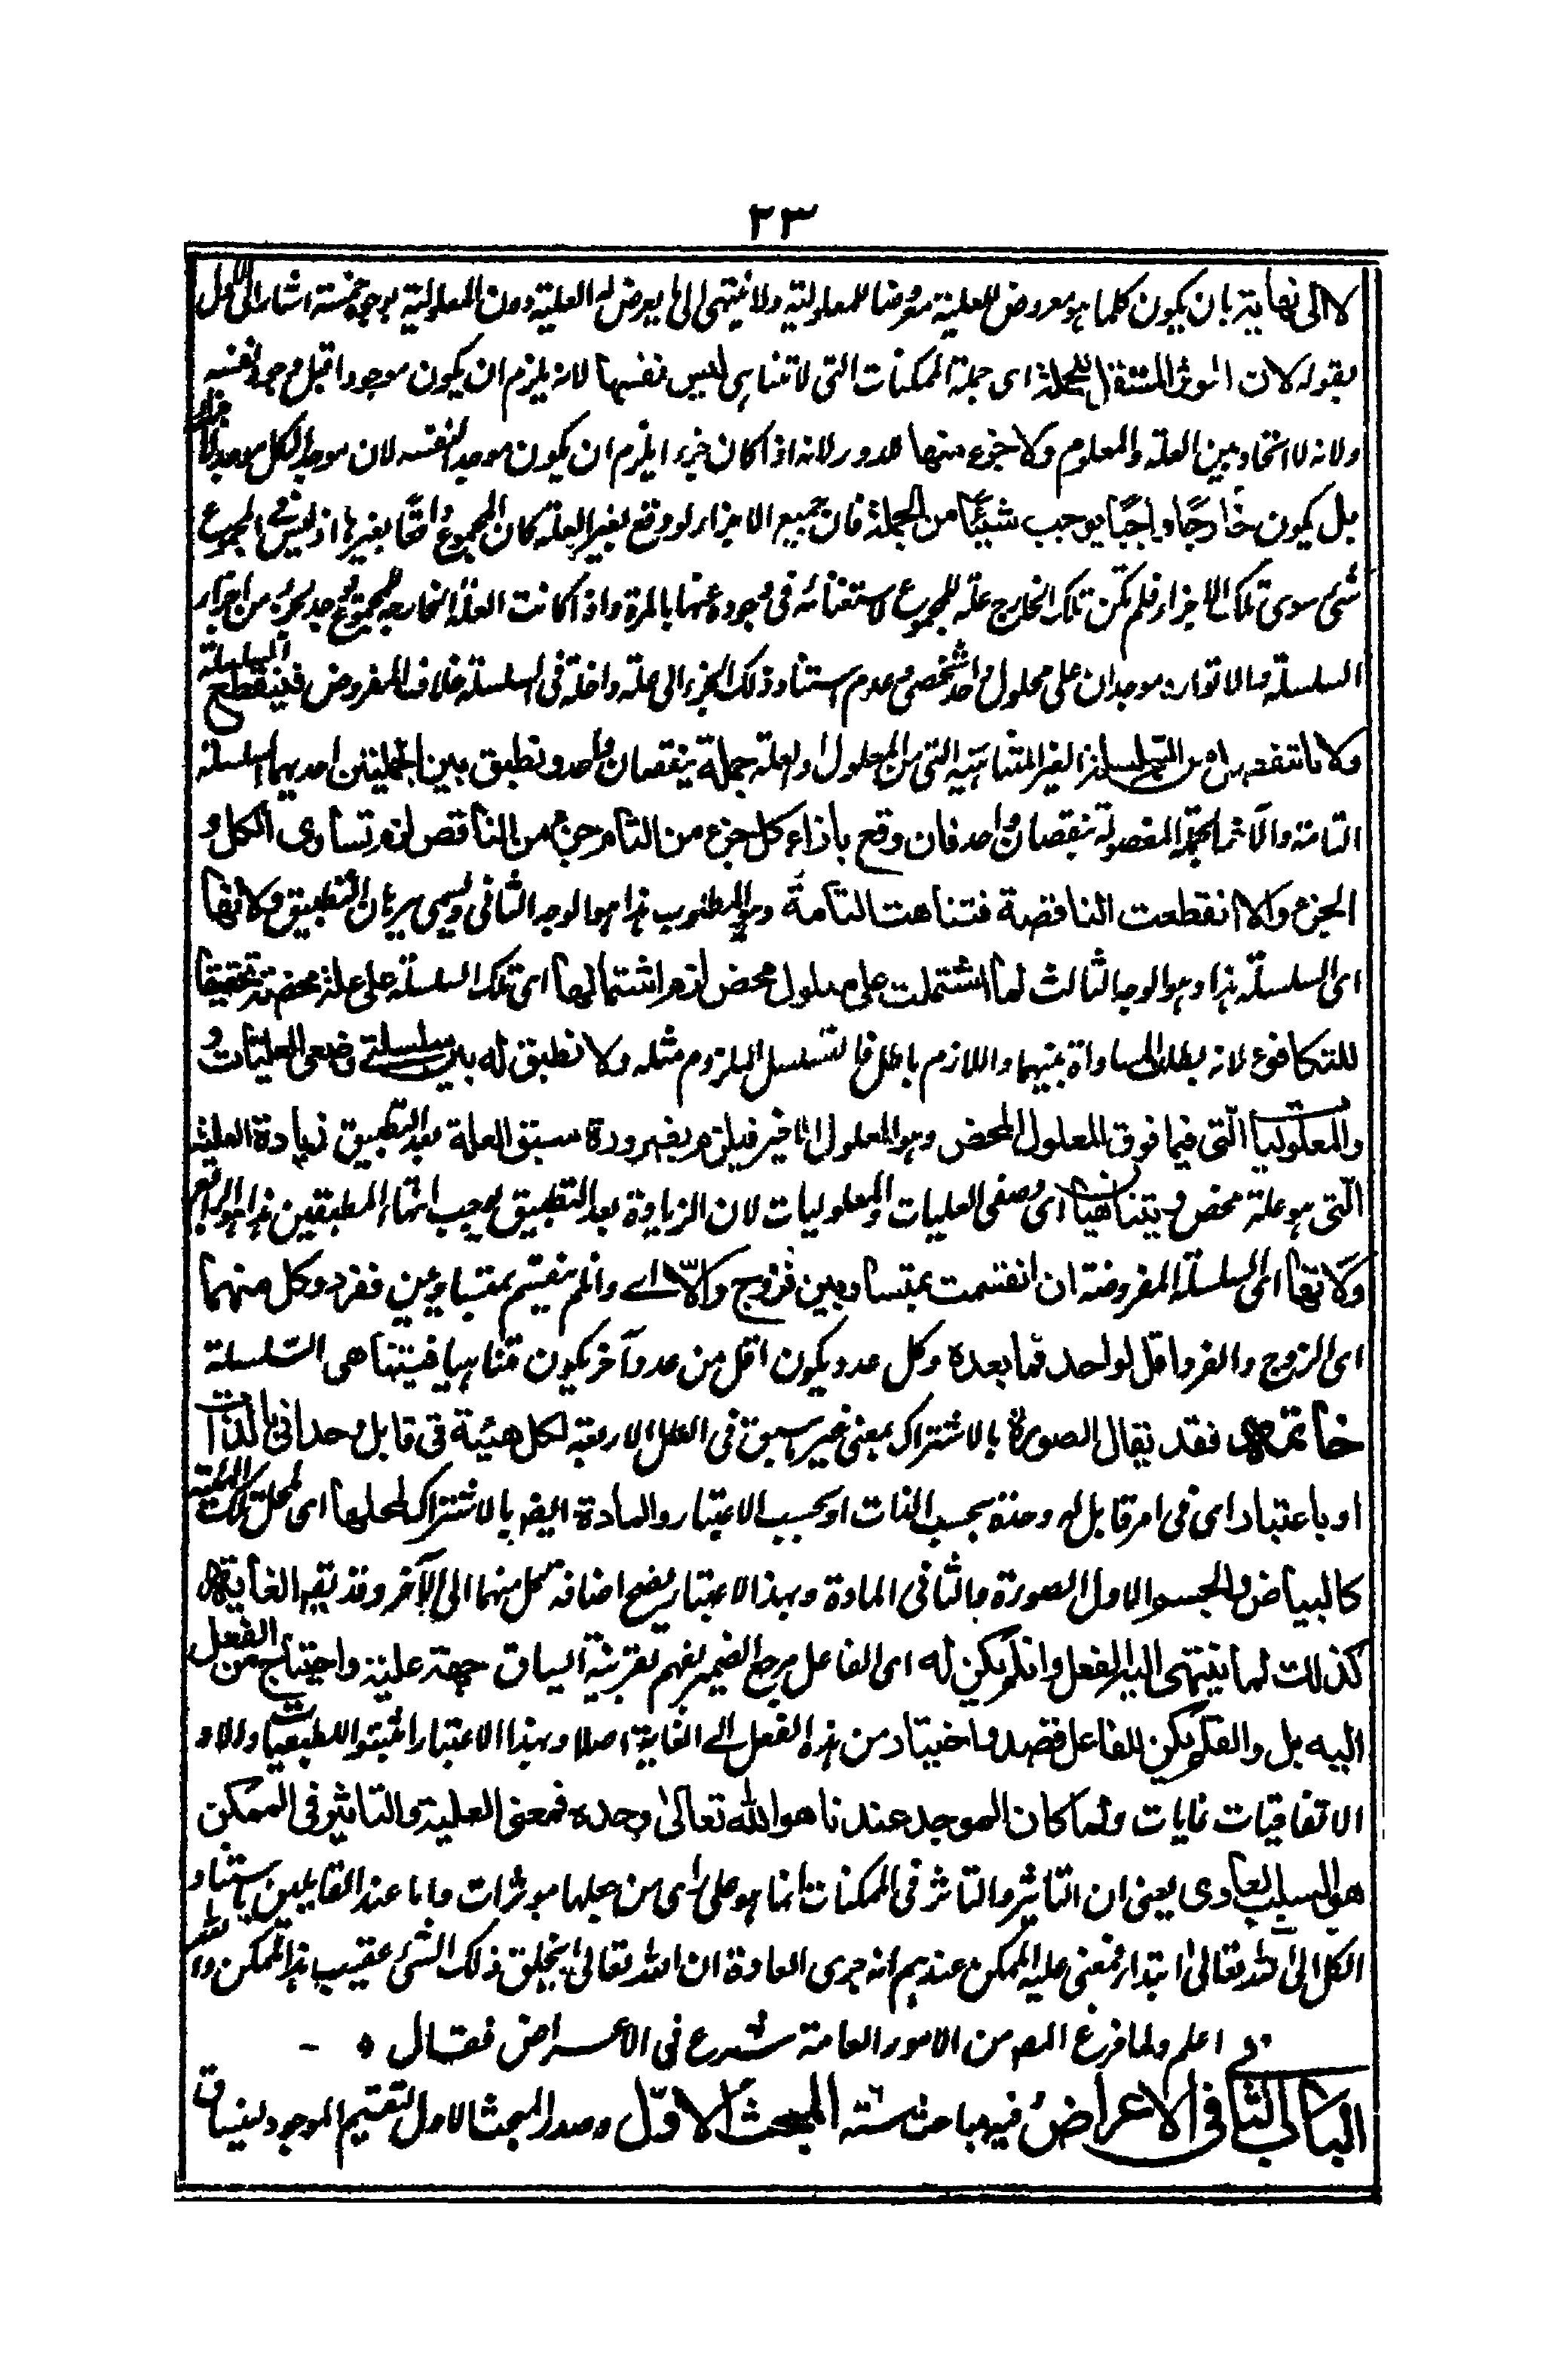 ٢٣
لا الى نهاية بان يكون كلما هو معروض للعلية معروضا للمعلولية ولا ينتهى الى ما يعرض له العلية دون المعلولية بوجوه خمسة اشار الى الاول
بقوله لان المؤثر المستقل للجملة اى جملة الممكنات التى لا تتناهى ليس نفسها لانه يلزم ان يكون موجودا قبل وجود نفسه
ولانه لا اتحاد بين العلة والمعلوم ولا جزء منها للدور لانه اذا كان جزءا يلزم ان يكون موجدا لنفسه لان موجد الكل موجد لاجزائه
بل يكون خارجا واجبا يوجب شيئا من الجملة فان جميع الاجزاء لو وقع بغير العلة كان المجموع واقعا بغيرها اذ ليس فى المجموع
شئ سوى تلك الاجزاء فلم تكن تلك الخارج علة للمجموع لاستغنائه فى وجوده عنها بالمرة واذا كانت العلة الخارجة للمجموع توجد لجزء من اجزاء
السلسلة موجدان على معلول واحد شخصى مع عدم استناد ذلك الجزء الى علة داخلة فى السلسلة خلاف المفروض فينقطع السلسلة
ولانا من التسلسل الغير المتناهية التى من المعلول او العلة جملة بنقصان واحد ونطبق بين الجملتين احديهما السلسلة
التامة والآخر الجملة المفصولة بنقصان واحد فان وقع بازاء كل جزء من التام جزء من الناقص لزم تساوى الكل و
الجزء والا انقطعت الناقصة فتناهت التامة وهو المطلوب هذا هو الوجه الثانى ويسمى ببرهان التطبيق ولانها
اى السلسلة هذا وهو الوجه الثالث لما اشتملت على معلول محض لزم اشتمالها اى تلك السلسلة على علة محضة تحقيقا
للتكافوء لانه بطلان المساواة بينهما واللازم باطل فالتسلسل الملزوم مثله ولا نطبق له بين سلسلتى وصفى العليات و
والمعلوليات التى فيما فوق المعلول المحض وهو المعلول الاخير فيلزم بضرورة سبق العلة بعد التطبيق زيادة العلة
التى هو علة محض ويتناهيان اى وصفى العليات والمعلوليات لان الزيادة بعد التطبيق يوجب انتهاء المطبقين هذا هو الرابع
ولانها اى السلسلة المفروضة ان انقسمت بمتساويين فزوج والا اے وان لم ينقسم بمتساويين ففرد وكل منهما
اى الزوج والفرد اقل لواحد مما بعده وكل عدد يكون اقل من عدد آخر يكون متناهيا فيتناهى السلسلة
خاتمة فقد يقال الصورة بالاشتراك بمعنى غير ما سبق فى العلل الاربعة لكل هيئة فى قابل وحدانى بالذات
او باعتبار اى فى امر قابل له وحدة بحسب الذات او بحسب الاعتبار والمادة ايضا بالاشتراك لمحلها اى لمحل تلك الهيئة
كالبياض والجسم والاول الصورة والثانى المادة وبهذا الاعتبار يصح اضافة كل منهما الى الآخر وقد يقال الغاية
كذلك لما ينتهى اليه الفعل وان لم يكن له اى الفاعل مرجع الضمير يفهم بقرينة السياق جهة علية واحتياج من الفعل
اليه بل وان لم يكن للفاعل قصد واختيار من هذه الفعل الى الغاية اصلا وبهذا الاعتبار اثبتوا للطبعيات والاو
الاتفاقيات غايات ولما كان الموجد عندنا هو الله تعالى وحده فمعنى العلية والتاثير فى الممكن
هو السبب العادى يعنى ان التاثير والتاثر فى الممكنات انما هو على راى من جعلها موثرات واما عند القايلين باستناد
الكل الى الله تعالى ابتداء فمعنى علية الممكن عندهم انه جرى العادة ان الله تعالى يخلق ذلك الشئ عقيب هذا الممكن والله
اعلم ولما فرغ المصـ من الامور العامة شرع فى الاعراض فقال
الباب الثانى فى الاعراض فيه مباحث ستة المبحث الاول وصدر المبحث الاول لتقسيم الموجود لينساق